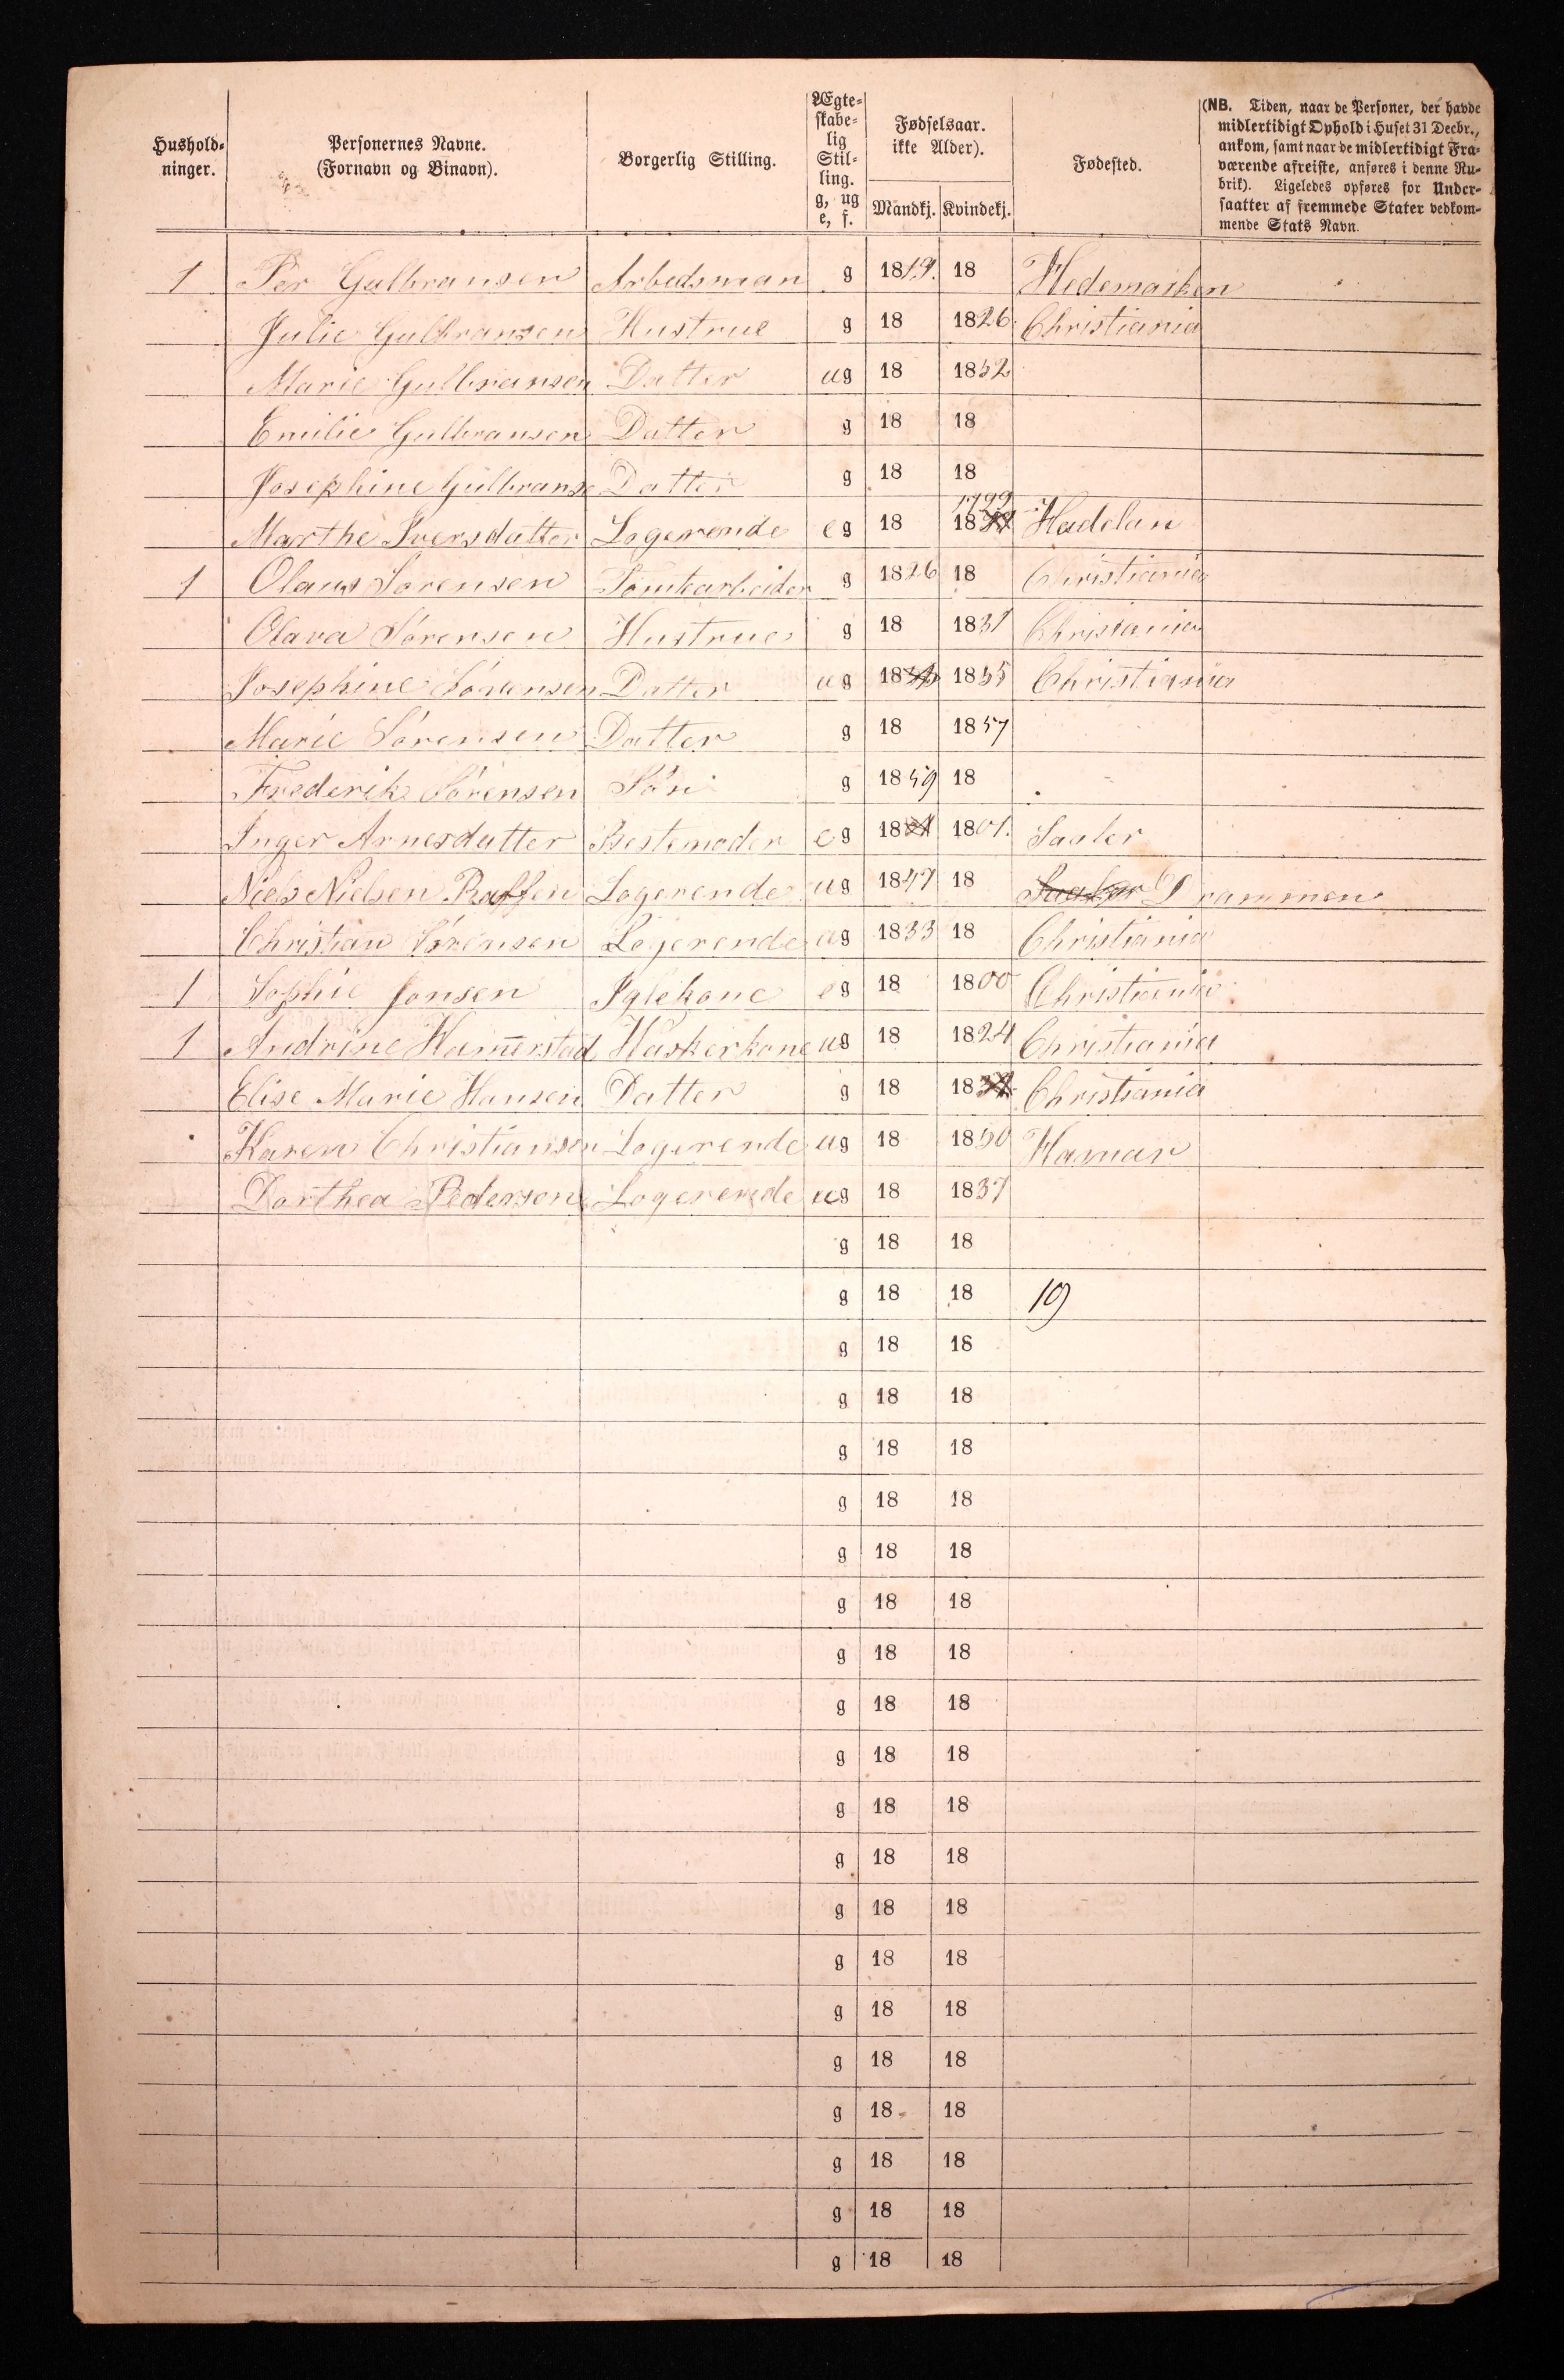 Hushold-
ninger.
Personernes Navne.
(Fornavn og Binavn).
Borgerlig Stilling.
Ægte-
skabe-
lig
Stil-
ling.
g, ug
e, f.
Fødselsaar.
ikke Alder).
Mandkj. Kvindekj.
Fødested.
(NB. Tiden, naar de Personer, der havde
midlertidigt Ophold i Huset 31 Decbr.,
ankom, samt naar de midlertidigt Fra-
værende afreiste, anføres i denne Ru-
brik). Ligeledes opføres for Under-
saatter af fremmede Stater vedkom-
mende Stats Navn.
1 Per Gulbransen Arbudsman g 1819. 18 Hedemarken
Julie Gulbransen Hustrue g 18 1826 Christiania
Marie Gulbransen Datter ug 18 1852
Emilie Gulbransen Datter g 18 18
Josephine Gulbranse Datter g 18 18
1799
Marthe Iversdatter Logerende eg 18 18 Hadelan
1 Olaus Sørensen Tomtearbeider g 1826 18 Christiania
Olava Sørensen Hustrue g 18 1831 Chrisiania
Josephine Sørensen Datter ug 18 1855 Christiania
Marie Sørensen Datter g 18 1857
Frederik Sørensen Søn g 1859 18
Inger Arnesdatter Bestemoder eg 18 1801. Saaler
Niels Nielsen Raffen Logerende ug 1847 18 Saaler Drammen
Christian Sørensen Logerende ug 1833 18 Christiania
1 Sophie Jonsen Iglekone eg 18 1800 Christiania
1 Andrine Hamerstad Waskerkone ug 18 1824 Christiania
Elise Marie Hansen Datter g 18 18 Christiania
Karen Christiansen Logerende ug 18 1850 Hamar
Dorthea Pedersen Logerende ug 18 1837
g 18 18
g 18 18 19
g 18 18
g 18 18
g 18 18
g 18 18
g 18 18
g 18 18
g 18 18
g 18 18
g 18 18
g 18 18
g 18 18
g 18 18
g 18 18
g 18 18
g 18 18
g 18 18
g 18 18
g 18 18
g 18 18